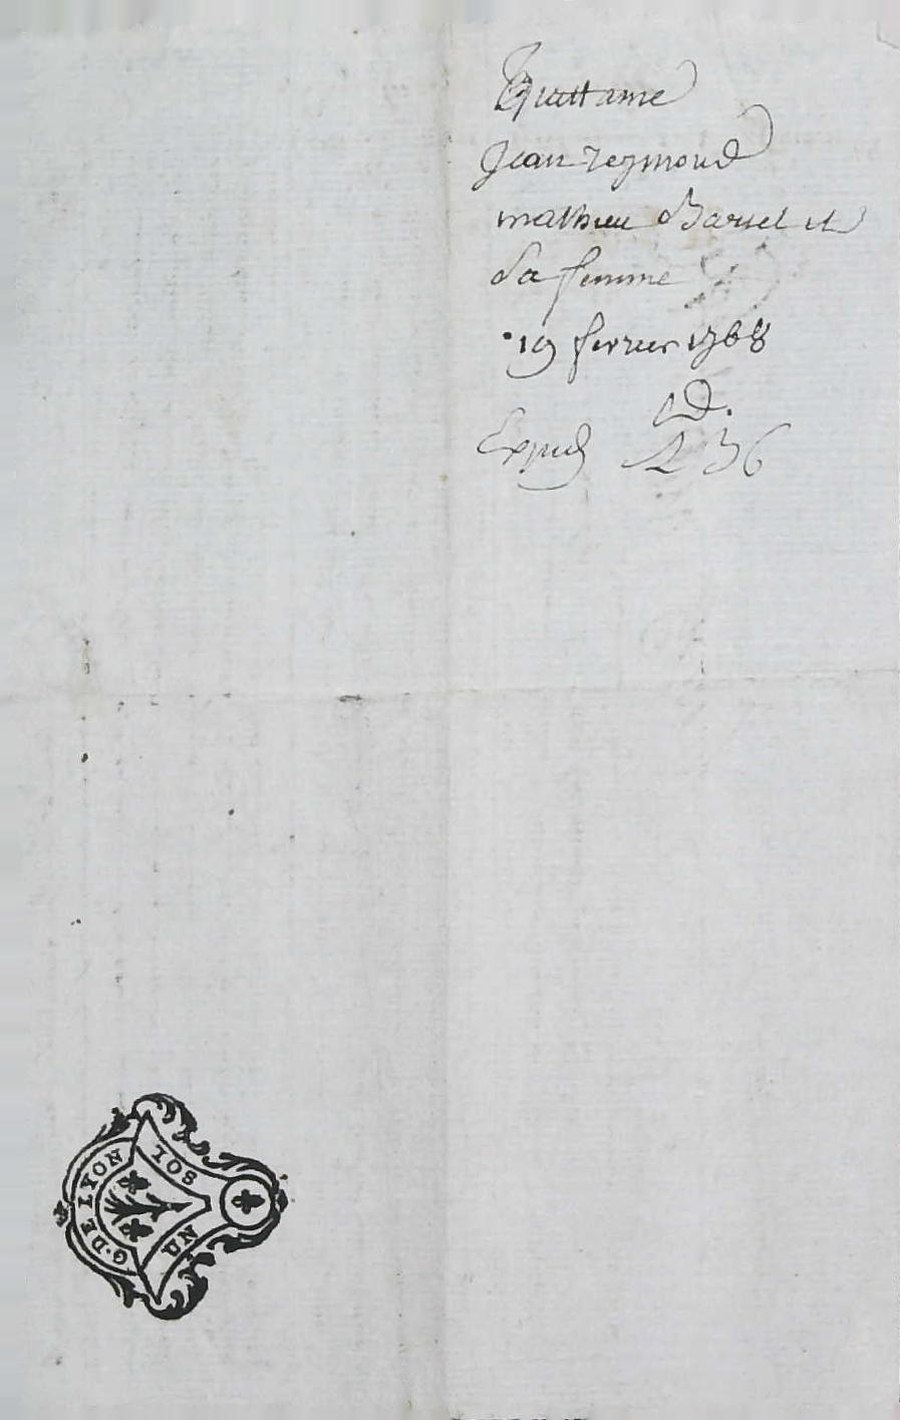 Quittance
Jean reymond
mathieu Barret et
Sa femme
19 fevrier 1768
Exped
G·DE LYON
UN SOL